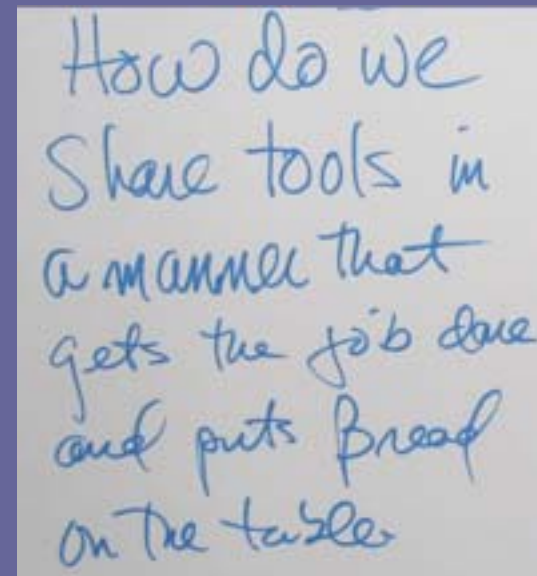 How do we
Share tools in
a manner that
gets the job done
and puts Bread
on the table